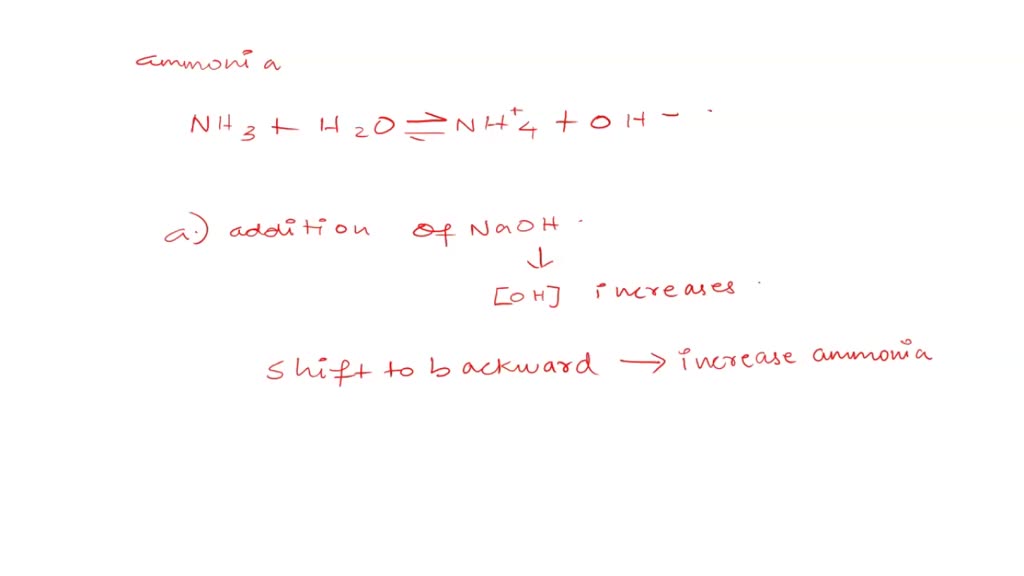 ammonia
NH3 + H2O ⇌ NH4+ + OH-
a.) addition of NaOH
↓
[OH] increases
shift to backward → increase ammonia